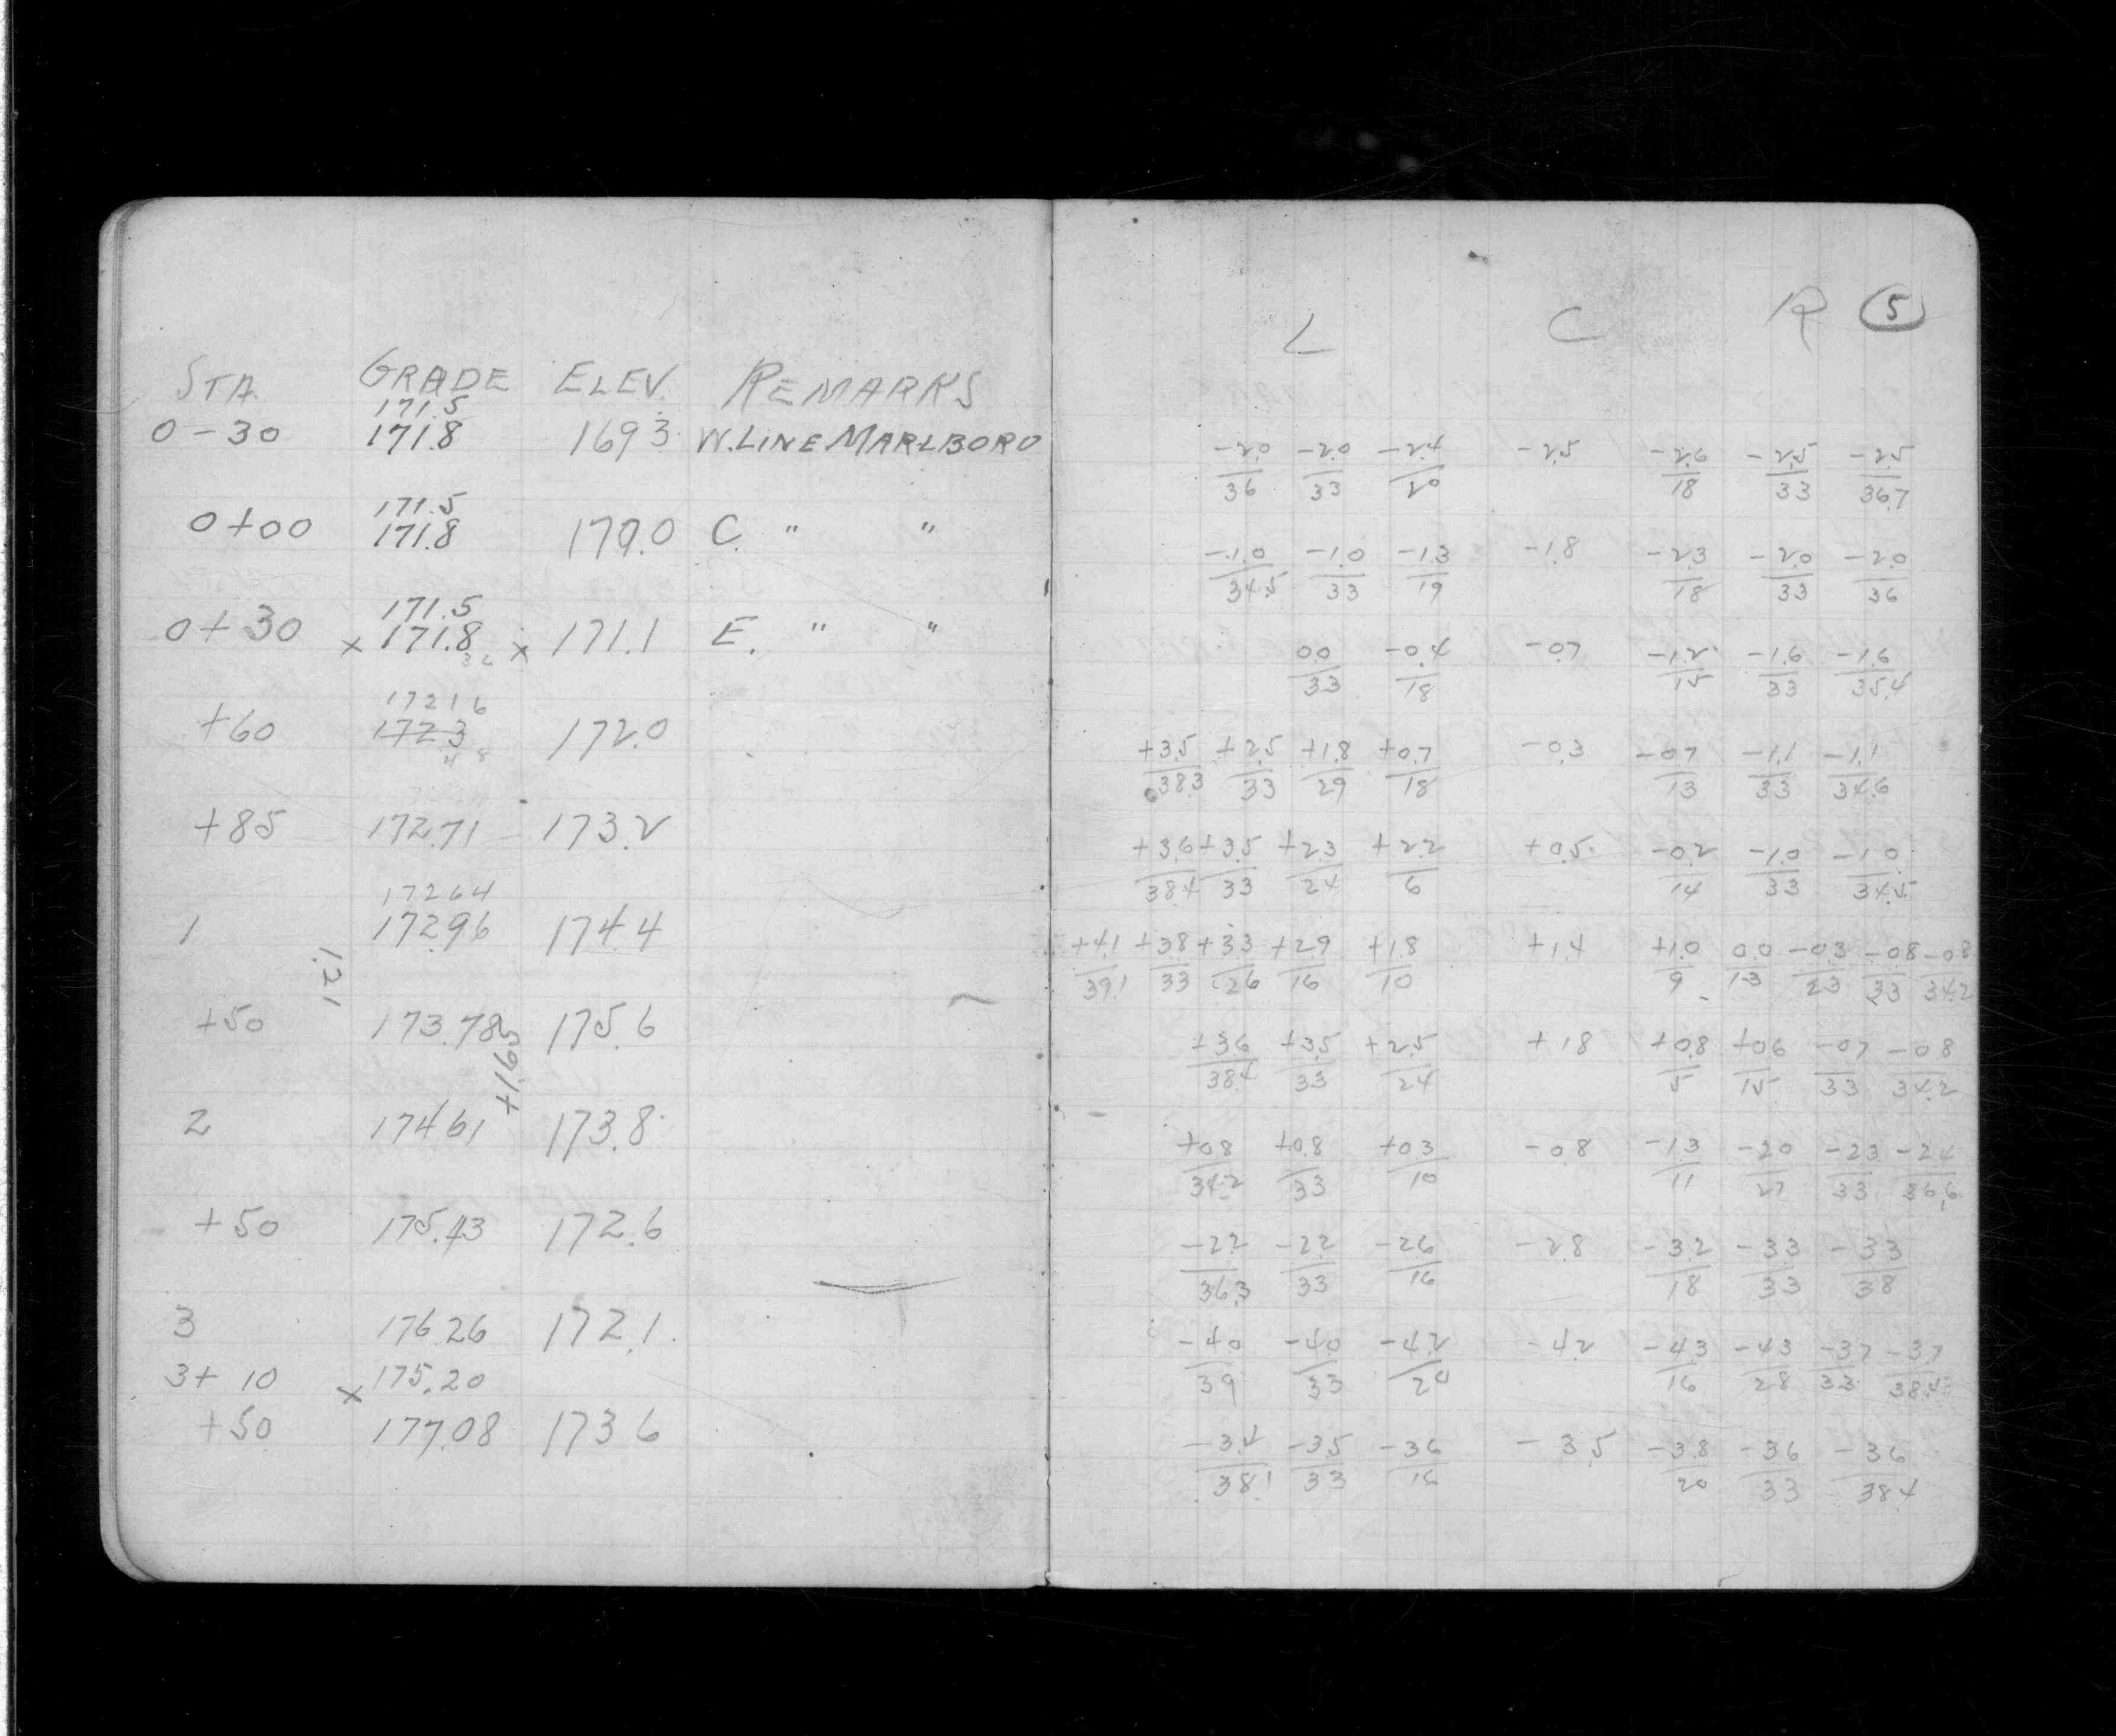 L C R 5
STA. GRADE ELEV. REMARKS
171.5
0-30 171.8 169.3 W. LINE MARLBORO
-2.0 -2.0 -2.4 -2.5 -2.6 -2.5 -2.5
36 33 20 18 33 36.7
171.5
0+00 171.8 170.0 C. " "
-1.0 -1.0 -1.3 -1.8 -2.3 -2.0 -2.0
34.5 33 19 18 33 36
171.5
0+30 x 171.8 x 171.1 E. " "
0.0 -0.4 -0.7 -1.2 -1.6 -1.6
33 18 15 33 35.4
172 16
+60 172.3 172.0
+3.5 +2.5 +1.8 +0.7 -0.3 -0.7 -1.1 -1.1
38.3 33 29 18 13 33 34.6
+85 172.71 173.2
+3.6 +3.5 +2.3 +2.2 +0.5 -0.2 -1.0 -1.0
38.4 33 24 6 14 33 34.5
172 64
1 172.96 174.4
+4.1 +3.8 +3.3 +2.9 +1.8 +1.4 +1.0 0.0 -0.3 -0.8 -0.8
39.1 33 26 16 10 9 13 23 33 34.2
1.21
+50 173.785 175.6
+3.6 +3.5 +2.5 +1.8 +0.8 +0.6 -0.7 -0.8
38.4 33 24 5 15 33 34.2
+1.65
2 174.61 173.8
+0.8 +0.8 +0.3 -0.8 -1.3 -2.0 -2.3 -2.4
34.2 33 10 11 27 33 36.6
+50 175.43 172.6
-2.2 -2.2 -2.6 -2.8 -3.2 -3.3 -3.3
36.3 33 16 18 33 38
3 176.26 172.1
-4.0 -4.0 -4.2 -4.2 -4.3 -4.3 -3.7 -3.7
39 33 20 16 28 33
3+10 x 175.20
+50 177.08 173.6
-3.4 -3.5 -3.6 -3.5 -3.8 -3.6 -3.6
38.1 33 16 20 33 38.4